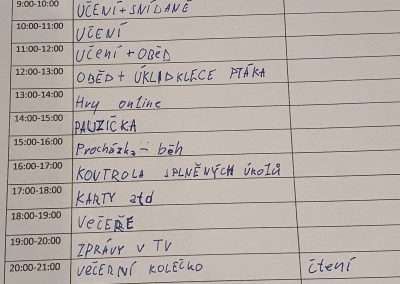 9:00-10:00 UČENÍ + SNÍDANĚ
10:00-11:00 UČENÍ
11:00-12:00 Učení + OBĚD
12:00-13:00 OBĚD + ÚKLID KLECE PTÁKA
13:00-14:00 Hry online
14:00-15:00 PAUZIČKA
15:00-16:00 Procházka - běh
16:00-17:00 KONTROLA SPLNĚNÝCH ÚKOLŮ
17:00-18:00 KARTY atd
18:00-19:00 VEČEŘE
19:00-20:00 ZPRÁVY V TV
20:00-21:00 VEČERNÍ KOLEČKO čtení